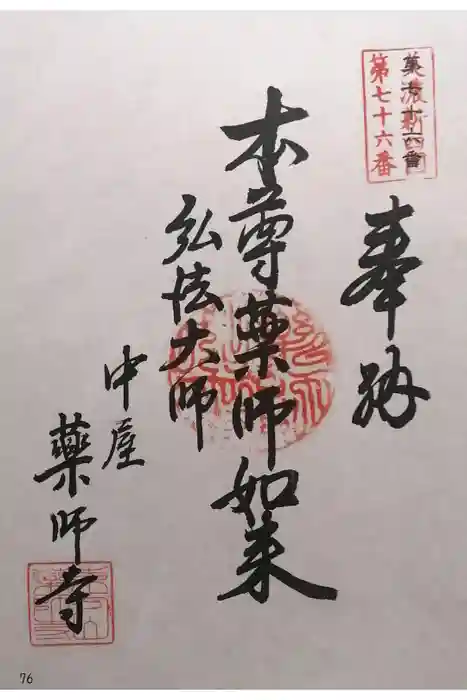 第七十六番
奉納
本尊薬師如来
弘法大師
中屋
薬師寺
76